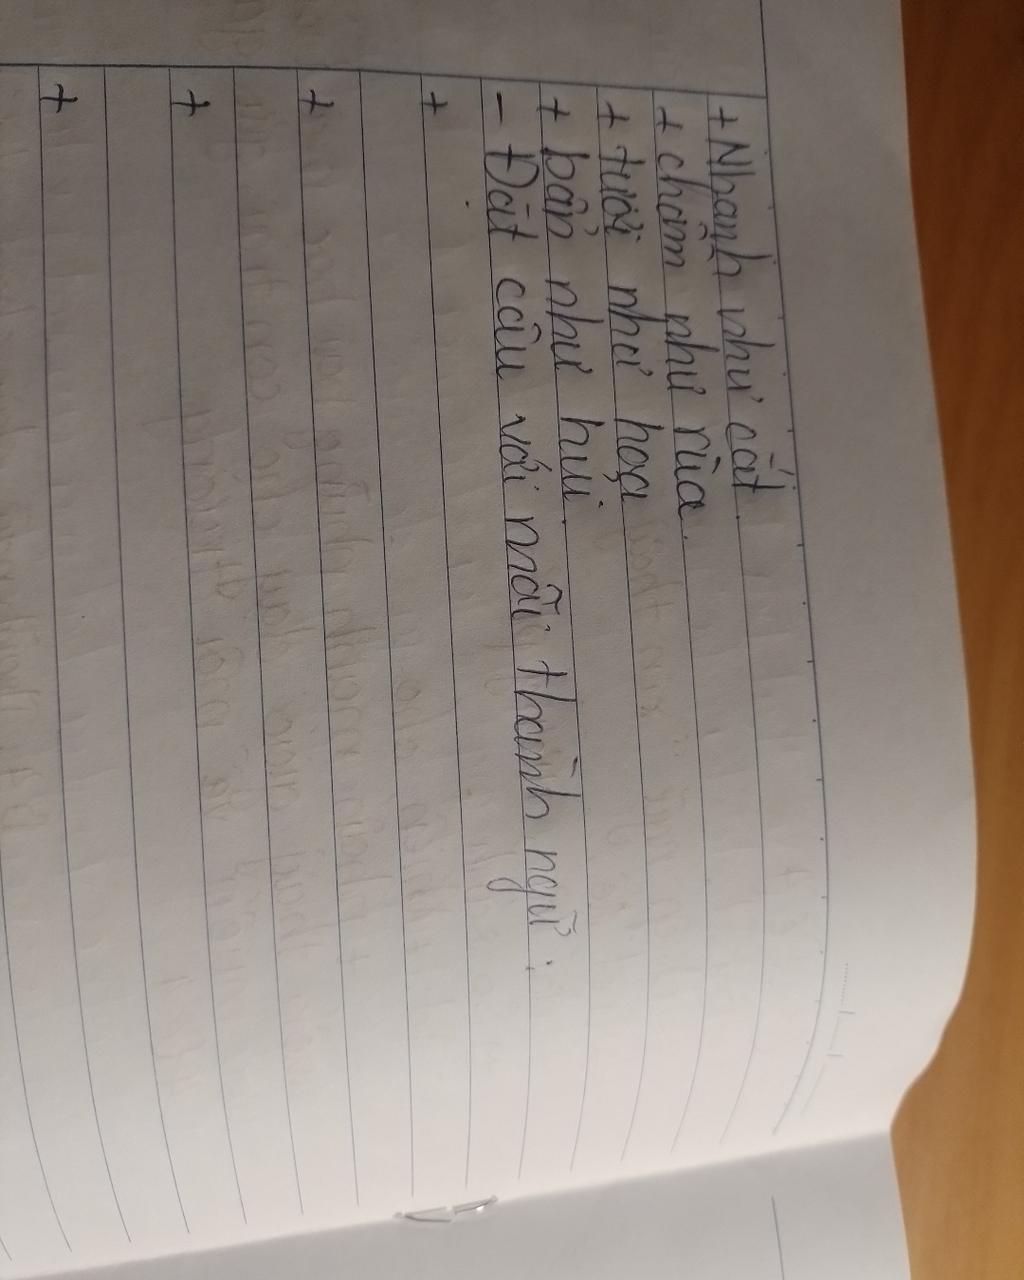 + Nhanh như cắt.
+ chậm như rùa.
+ tươi như hoa
+ bẩn như hủi.
- Đặt câu với mỗi thành ngữ:
+
+
+
+